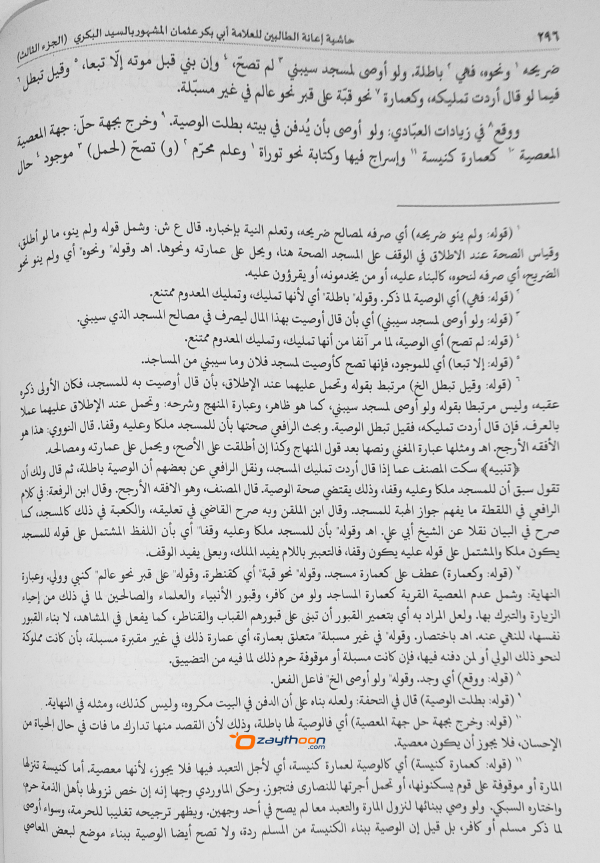 ٢٩٦ حاشية إعانة الطالبين للعلامة أبي بكر عثمان المشهور بالسيد البكري (الجزء الثالث)
ضريحه ١ ونحوه، فهي ٢ باطلة. ولو أوصى لمسجد سيبنى ٣ لم تصحّ، ٤ وإن بني قبل موته إلّا تبعا، ٥ وقيل تبطل ٦
فيما لو قال أردت تمليكه، وكعمارة ٧ نحو قبّة على قبر نحو عالم في غير مسبّلة.
ووقع ٨ في زيادات العبّادي: ولو أوصى بأن يُدفن في بيته بطلت الوصية. ٩ وخرج بجهة حلّ: جهة المعصية
المعصية ١٠ كعمارة كنيسة ١١ وإسراج فيها وكتابة نحو توراة ١ وعلم محرّم ٢ (و) تصحّ (لحمل) ٣ موجود ٤ حال
١ (قوله: ولم ينو ضريحه) أي صرفه لمصالح ضريحه، وتعلم النية بإخباره. قال ع ش: وشمل قوله ولم ينو، ما لو أطلق،
وقياس الصحة عند الاطلاق في الوقف على المسجد الصحة هنا، ويحل على عمارته ونحوها. اهـ وقوله" ونحوه" أي ولم ينو نحو
الضريح، أي صرفه لنحوه، كالبناء عليه، أو من يخدمونه، أو يقرؤون عليه.
٢ (قوله: فهي) أي الوصية لما ذكر. وقوله" باطلة" أي لأنها تمليك، وتمليك المعدوم ممتنع.
٣ (قوله: ولو أوصى لمسجد سيبنى) أي بأن قال أوصيت بهذا المال ليصرف في مصالح المسجد الذي سيبني.
٤ (قوله: لم تصح) أي الوصية، لما مر آنفا من أنها تمليك، وتمليك المعدوم ممتنع.
٥ (قوله: إلا تبعا) أي للموجود، فإنها تصح كأوصيت لمسجد فلان وما سيبني من المساجد.
٦ (قوله: وقيل تبطل الخ) مرتبط بقوله وتحمل عليهما عند الإطلاق، بأن قال أوصيت به للمسجد، فكان الأولى ذكره
عقبه، وليس مرتبطا بقوله ولو أوصى لمسجد سيبني، كما هو ظاهر، وعبارة المنهج وشرحه: وتحمل عند الإطلاق عليهما عملا
بالعرف. فإن قال أردت تمليكه، فقيل تبطل الوصية. وبحث الرافعي صحتها بأن للمسجد ملكا وعليه وقفا. قال النووي: هذا هو
الأفقه الأرجح. اهـ ومثلها عبارة المغني ونصها بعد قول المنهاج وكذا إن أطلقت على الأصح، ويحمل على عمارته ومصالحه.
﴿تنبيه﴾ سكت المصنف عما إذا قال أردت تمليك المسجد، ونقل الرافعي عن بعضهم أن الوصية باطلة، ثم قال ولك أن
تقول سبق أن للمسجد ملكا وعليه وقفا، وذلك يقتضي صحة الوصية. قال المصنف، وهو الافقه الأرجح. وقال ابن الرفعة: في كلام
الرافعي في اللقطة ما يفهم جواز الهبة للمسجد. وقال ابن الملقن وبه صرح القاضي في تعليقه، والكعبة في ذلك كالمسجد، كما
صرح في البيان نقلا عن الشيخ أبي علي. اهـ وقوله" بأن للمسجد ملكا وعليه وقفا" أي بأن اللفظ المشتمل على قوله للمسجد
يكون ملكا والمشتمل على قوله عليه يكون وقفا، فالتعبير باللام يفيد الملك، وبعلى يفيد الوقف.
٧ (قوله: وكعمارة) عطف على كعمارة مسجد. وقوله" نحو قبة" أي كقنطرة. وقوله" على قبر نحو عالم" كنبي وولي، وعبارة
النهاية: وشمل عدم المعصية القربة كعمارة المساجد ولو من كافر، وقبور الأنبياء والعلماء والصالحين لما في ذلك من إحياء
الزيارة والتبرك بها. ولعل المراد به أي بتعمير القبور أن تبنى على قبورهم القباب والقناطر، كما يفعل في المشاهد، لا بناء القبور
نفسها، للنهي عنه. اهـ باختصار. وقوله" في غير مسبلة" متعلق بعمارة، أي عمارة ذلك في غير مقبرة مسبلة، بأن كانت مملوكة
لنحو ذلك الولي أو لمن دفنه فيها، فإن كانت مسبلة أو موقوفة حرم ذلك لما فيه من التضييق.
٨ (قوله: ووقع) أي وجد. وقوله" ولو أوصى الخ" فاعل الفعل.
٩ (قوله: بطلت الوصية) قال في التحفة: ولعله بناه على أن الدفن في البيت مكروه، وليس كذلك، ومثله في النهاية.
١٠ (قوله: وخرج بجهة حل جهة المعصية) أي فالوصية لها باطلة، وذلك لأن القصد منها تدارك ما فات في حال الحياة من
الإحسان، فلا يجوز أن يكون معصية.
Ozaythoon.com
١١ (قوله: كعمارة كنيسة) أي كالوصية لعمارة كنيسة، أي لأجل التعبد فيها فلا يجوز، لأنها معصية. أما كنيسة تنزلها
المارة أو موقوفة على قوم يسكنونها، أو تحمل أجرتها للنصارى فتجوز. وحكى الماوردي وجها إنه إن خص نزولها بأهل الذمة حرم؛
واختاره السبكي. ولو وصي ببنائها لنزول المارة والتعبد معا لم يصح في أحد وجهين. ويظهر ترجيحه تغليبا للحرمة، وسواء أوصى
لما ذكر مسلم أو كافر، بل قيل إن الوصية ببناء الكنيسة من المسلم ردة، ولا تصح أيضا الوصية ببناء موضع لبعض المعاصي